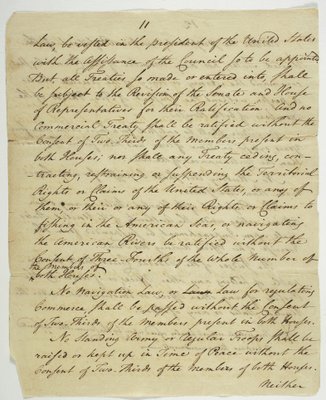 11
Law, be vested in the president of the United States
with the assistance of the Council so to be appointed
But all Treaties so made or entered into, shall
be subject to the Revision of the Senate and House
of Representatives for their Ratification. And no
Commercial Treaty shall be ratified without the
Consent of Two-Thirds of the Members present in
both Houses; nor shall any Treaty ceding, con-
tracting, restraining or suspending the Territorial
Rights or Claims of the United States, or any of
them, or their or any of their Rights or Claims to
fishing in the American Seas, or navigating
the American Rivers be ratified without the
Consent of Three-Fourths of the whole Number of
the Members
both Houses.
No Navigation Law, or Law for regulating
Commerce, shall be passed without the Consent
of Two-Thirds of the Members present in both Houses.
No Standing Army or Regular Troops shall be
raised or kept up in Time of Peace without the
Consent of Two-Thirds of the Members of both Houses.
Neither